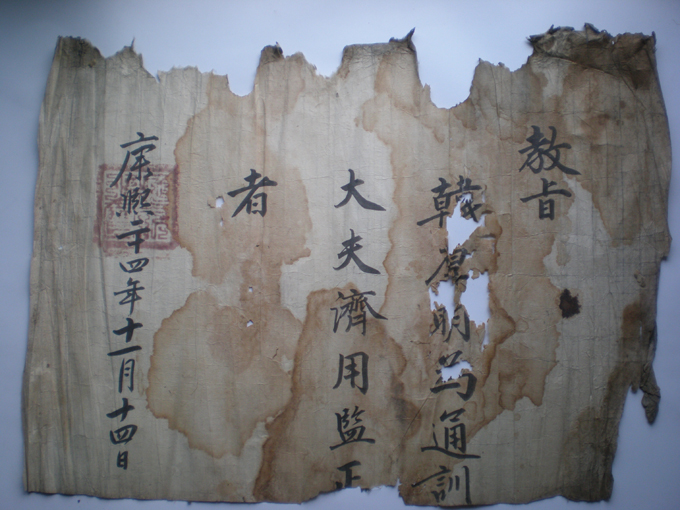 教旨
韓明爲通訓
大夫濟用監正
者
康熙二十四年十一月十四日